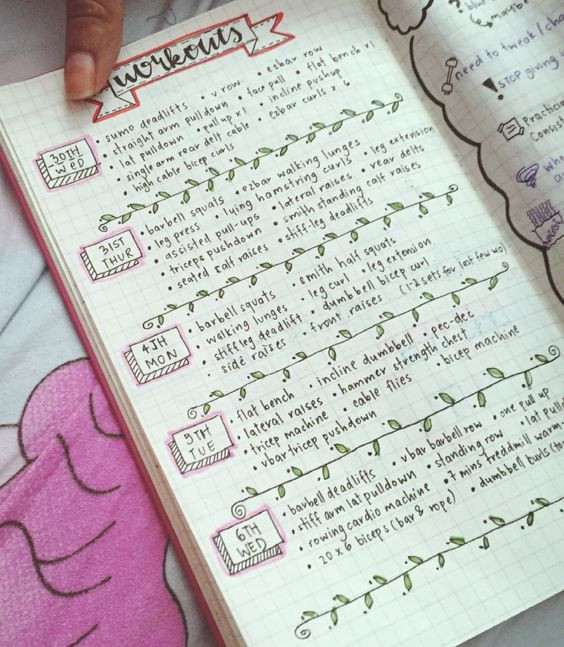 workouts
30TH WED
• sumo deadlifts • v row • ezbar row
• straight arm pulldown • face pull • flat bench x1
• lat pulldown • pull up x1 • incline pushup
• single arm rear delt cable • ezbar curls x 6
• high cable bicep curls
31ST THUR
• barbell squats • ezbar walking lunges • leg extension
• leg press • lying hamstring curls • rear delts
• assisted pull-ups • lateral raises
• triceps pushdown • smith standing calf raises
• seated calf raises • stiff-leg deadlifts
4TH MON
• barbell squats • smith half squats
• walking lunges • leg curl • leg extension
• stiff leg deadlift • dumbbell bicep curl
• side raises • front raises (1-2 sets for last few wo)
5TH TUE
• flat bench • incline dumbbell • pec-dec
• lateral raises • hammer strength chest
• tricep machine • cable flies • bicep machine
• vbar tricep pushdown
6TH WED
• barbell deadlifts • vbar barbell row • one pull up
• stiff arm lat pulldown • standing row • lat
• rowing cardio machine • 7 mins treddmill warm
• 20 x 6 biceps (bar & rope) • dumbbell curls
need to tweak /
STOP giving
Practicin
Consist